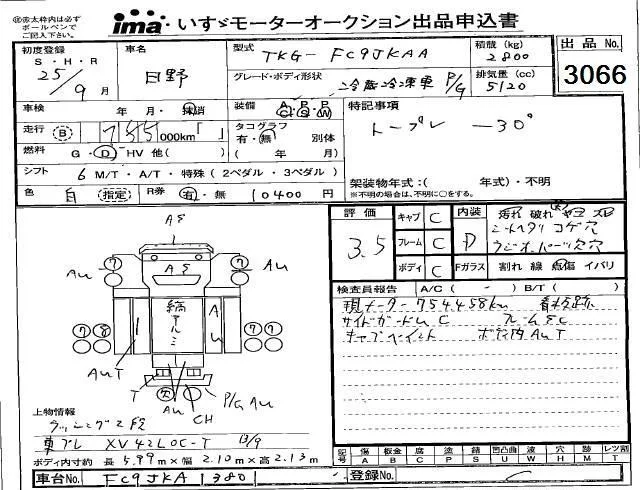 太枠内は必ず
ボールペンで
ご記入下さい。
ima いすゞモーターオークション出品申込書
初度登録 S・H・R 25年 9月
車名 日野
型式 TKG-FC9JKAA
積載 (kg) 2800
出品 No. 3066
グレード・ボディ形状 冷蔵冷凍車 P/G
排気量(cc) 5120
車検 年・月・抹消
装備 A C P S P W
特記事項
走行 B 755 000km「 」
タコグラフ 有・無 別体 ( 年 月)
トープレ -30°
燃料 G・D・HV 他( )
シフト 6 M/T・A/T・特殊(2ペダル・3ペダル)
架装物年式:( 年式)・不明
※不明の場合は、不明に○をする。
色 白 (指定) R券 有・無 10400円
評価 3.5
キャブ C
フレーム C
ボディ C
内装 D
汚れ 破れ ヤニ スレ
シートヘタリ コゲ穴
Fガラス 割れ 線 点傷 イバリ
検査員報告 A/C( - ) B/T( )
現メーター754458km
サイドガードU C
キャブペイント ボディ内AuT
AS
AS
Au 7 7 Au
7 8 縞アルミ Au 7 7
AuT
T Au CH P/G Au
上物情報
ラッシング2段
東プレ XV42LOC-T 13/9
ボディ内寸約 長 5.99m×幅 2.10m×高 2.13m
記号 傷 A 板金 B 腐 C 塗 P 錆 S 凹凸曲 U 波 W 穴 H 跡 M レツ割 T
車台No. FC9JKA 1380
登録No.